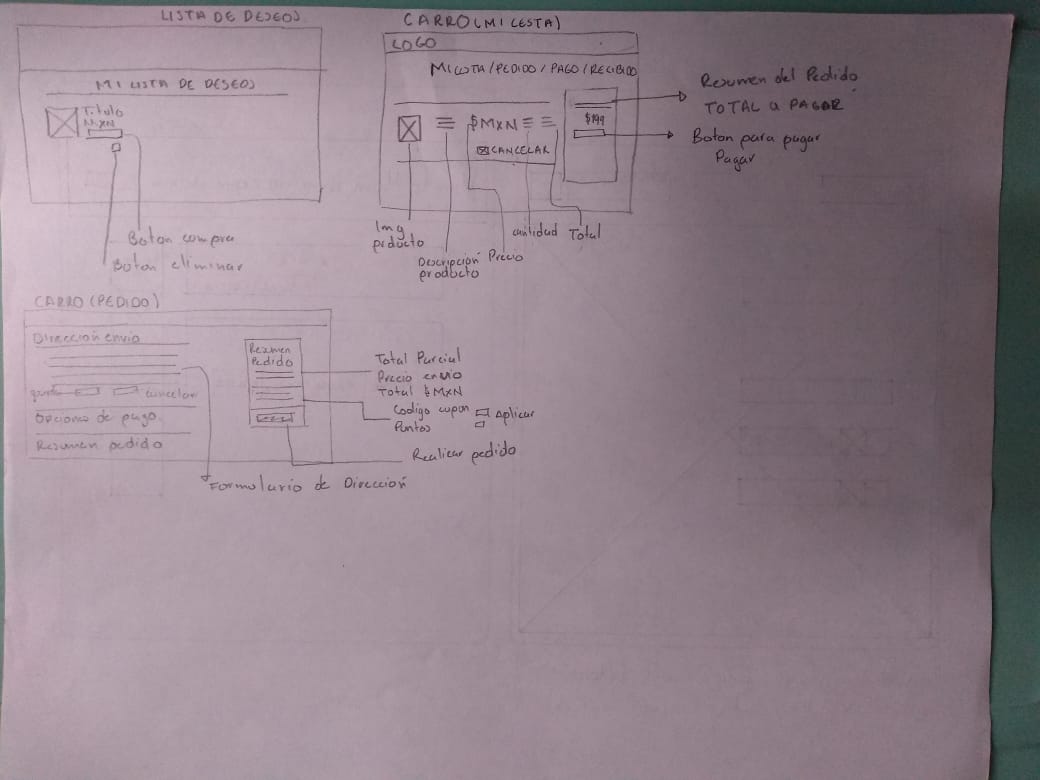 LISTA DE DESEOS
MI LISTA DE DESEOS
Titulo
MXN
Boton compra
Boton eliminar
CARRO (MI CESTA)
LOGO
MI CESTA / PEDIDO / PAGO / RECIBIDO
$MXN
CANCELAR
$199
Resumen del Pedido
TOTAL a PAGAR
Boton para pagar
Pagar
Img
producto
Descripción
producto
Precio
cantidad
Total
CARRO (PEDIDO)
Direccion envio
cancelar
Opciones de pago
Resumen pedido
Resumen
Pedido
Total Parcial
Precio envio
Total $MXN
Codigo cupon
Aplicar
Puntos
Realizar pedido
Formulario de Dirección